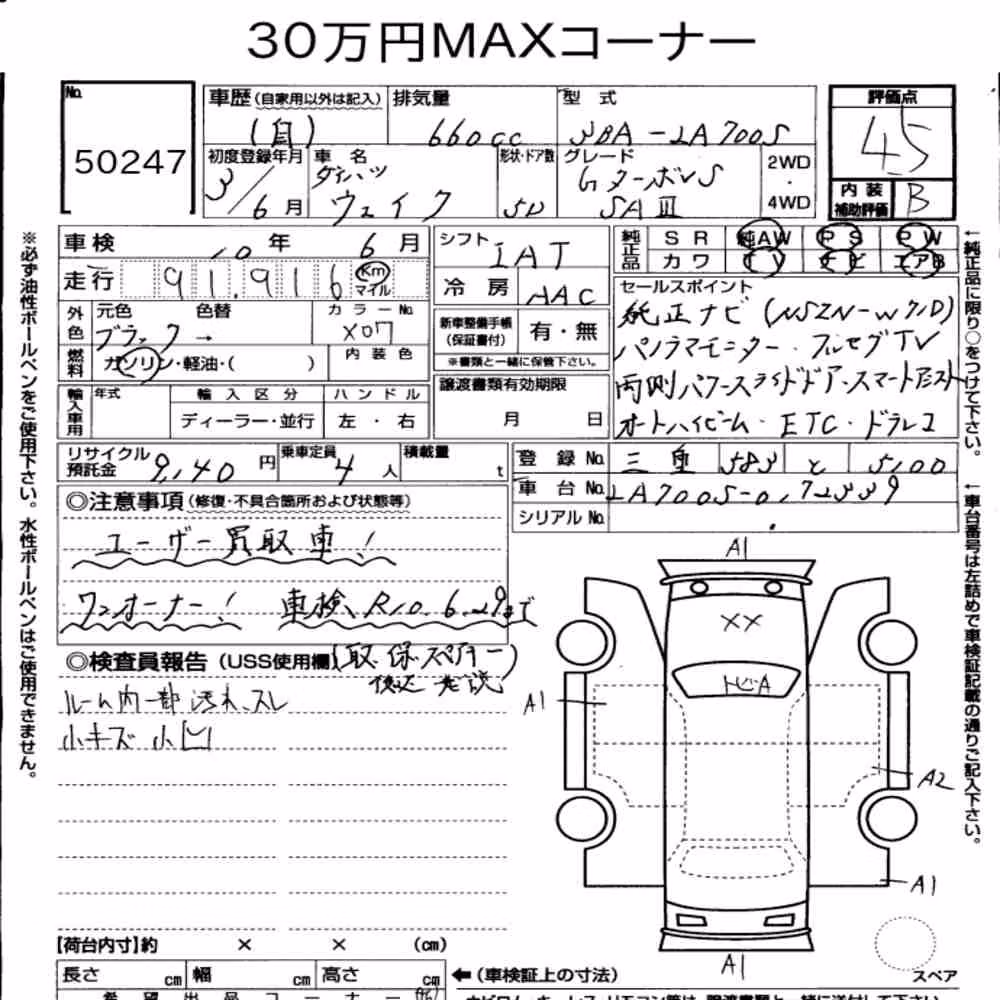 30万円MAXコーナー
No. 50247
車歴(自家用以外は記入) (自)
排気量 660cc
型式 3BA-LA700S
評価点 4.5
内装補助評価 B
初度登録年月 3/6月
車名 ダイハツ ウェイク
形状・ドア数 5D
グレード GターボVS SAⅢ
2WD・4WD
車検 10年 6月
走行 91,916 Km マイル
シフト IAT
冷房 AAC
純正品 SR 純AW PS PW
カワ TV ナビ エアB
外色 元色 ブラック → 色替
カラーNo. X07
燃料 ガソリン・軽油・( )
内装色
新車整備手帳(保証書付) 有・無
※書類と一緒に保管下さい。
セールスポイント
純正ナビ(NSZN-W71D)
パノラマモニター・フルセグTV
両側パワースライドドア・スマートアシスト
オートハイビーム・ETC・ドラレコ
輸入車用 年式 輸入区分 ハンドル
ディーラー・並行 左・右
譲渡書類有効期限
月 日
リサイクル預託金 9,140円
乗車定員 4人
積載量 t
登録No. 三重 583 と 5100
車台No. LA700S-0172339
シリアルNo.
◎注意事項(修復・不具合箇所および状態等)
ユーザー買取車!
ワンオーナー! 車検、R10.6.29まで
◎検査員報告(USS使用欄)
(取・保・スペアキー)
後込 発送
ルーム内一部汚れ、スレ
小キズ 小凹
A1
××
トビA
A1
A2
A1
A1
スペア
【荷台内寸】約 × × (cm)
長さ cm 幅 cm 高さ cm
←(車検証上の寸法)
※必ず油性ボールペンをご使用下さい。水性ボールペンはご使用できません。
←純正品に限り○をつけて下さい。
←車台番号は左詰めで車検証記載の通りご記入下さい。